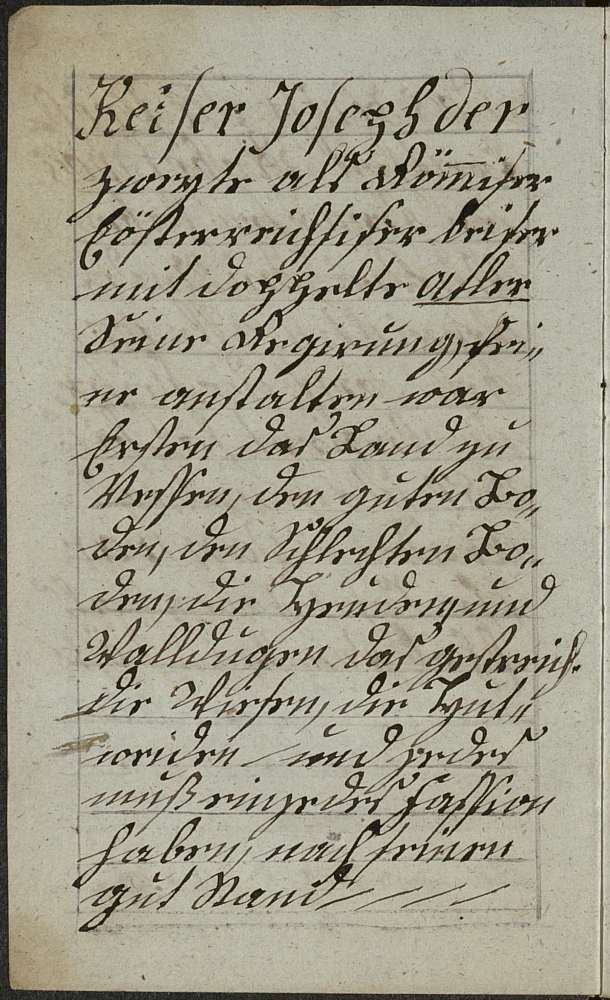 Keiser Joseph der
zweyte als Römmiser
Eösterreichsiser keiser
mit doppelte Atler
Seine Regirung, sei„
ne anstalten war
Ersten das Land zu
Messen, den guten Bo„
den, den Schlechten Bo„
den, die und
Walldugen das gestreich.
die Wiesen, die Hut„
weiden und jedes
muß ein jedes Fassion
haben, nach seinen
gut Stand